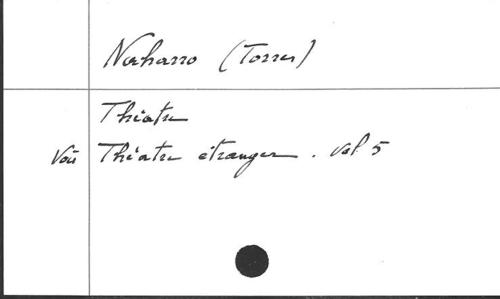 Naharro (Torres)
Théatre
Voir Théatre étranger. vol 5